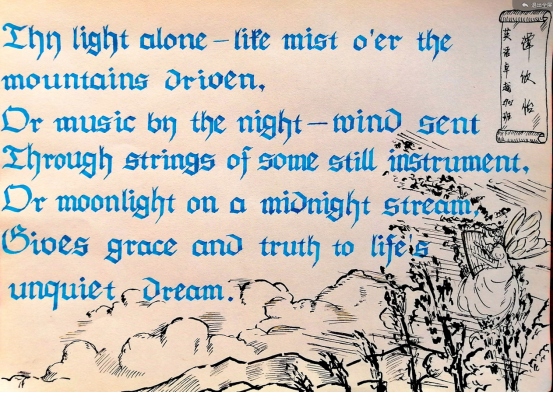 Thy light alone – like mist o'er the
mountains driven,
Or music by the night – wind sent
Through strings of some still instrument,
Or moonlight on a midnight stream,
Gives grace and truth to life's
unquiet dream.
英语卓越班